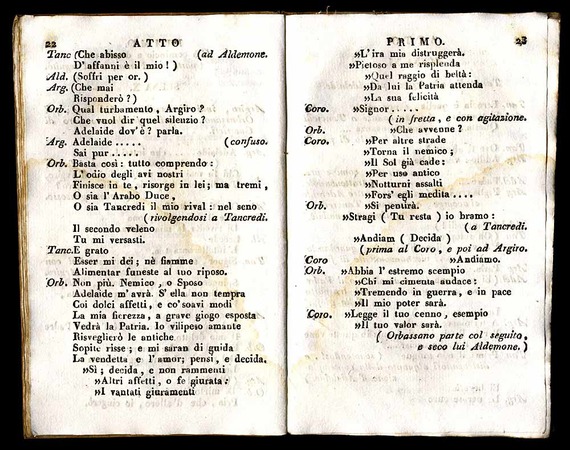 22 ATTO
Tanc (Che abisso (ad Aldemone.
D'affanni è il mio!)
Ald. (Soffri per or.)
Arg. (Che mai
Risponderò?)
Orb. Qual turbamento, Argiro?
Che vuol dir quel silenzio?
Adelaide dov'è? parla.
Arg. Adelaide ..... (confuso.
Sai pur .....
Orb. Basta così: tutto comprendo:
L'odio degli avi nostri
Finisce in te, risorge in lei; ma tremi,
O sia l'Arabo Duce,
O sia Tancredi il mio rival: nel seno
(rivolgendosi a Tancredi.
Il secondo veleno
Tu mi versasti.
Tanc. E grato
Esser mi dei; nè fiamme
Alimentar funeste al tuo riposo.
Orb. Non più. Nemico, o Sposo
Adelaide m'avrà. S'ella non tempra
Coi dolci affetti, e co'soavi modi
La mia fierezza, a grave giogo esposta
Vedrà la Patria. Io vilipeso amante
Risveglierò le antiche
Sopite risse; e mi saran di guida
La vendetta e l'amor; pensi, e decida.
»Sì; decida, e non rammenti
»Altri affetti, o fe giurata:
»I vantati giuramenti
PRIMO. 23
»L'ira mia distruggerà.
»Pietoso a me risplenda
»Quel raggio di beltà:
»Da lui la Patria attenda
»La sua felicità
Coro. »Signor .....
(in fretta, e con agitazione.
Orb. »Che avvenne?
Coro. »Per altre strade
»Torna il nemico;
»Il Sol già cade:
»Per uso antico
»Notturni assalti
»Fors' egli medita ....
Orb. »Si pentirà.
»Stragi (Tu resta) io bramo:
(a Tancredi.
»Andiam (Decida)
(prima al Coro, e poi ad Argiro.
Coro »Andiamo.
Orb. »Abbia l'estremo scempio
»Chi mi cimenta audace:
»Tremendo in guerra, e in pace
»Il mio poter sarà.
Coro. »Legge il tuo cenno, esempio
»Il tuo valor sarà.
(Orbassano parte col seguito,
e seco lui Aldemone.)